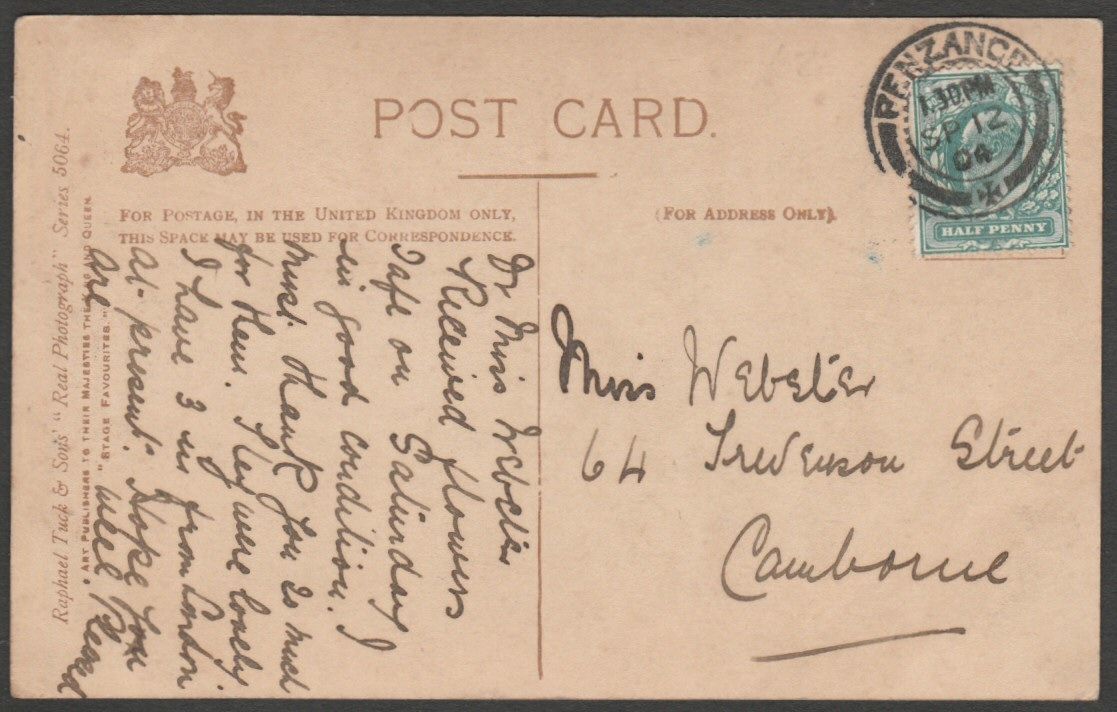 POST CARD.
FOR POSTAGE, IN THE UNITED KINGDOM ONLY,
THIS SPACE MAY BE USED FOR CORRESPONDENCE.
(FOR ADDRESS ONLY).
PENZANCE
1.30PM
SP 12
04
HALF PENNY
Raphael Tuck & Sons' "Real Photograph" Series 5064.
ART PUBLISHERS TO THEIR MAJESTIES THE KING AND QUEEN.
"STAGE FAVOURITES."
Dr Miss Webster
Received flowers
safe on Saturday
in good condition. I
must thank you so much
for them. They were lovely
I have 3 in from London
at present. Hope you
are well
Miss Webster
64 Trevenson Street
Camborne